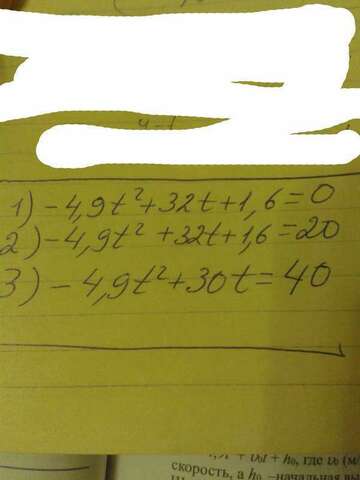 1) -4,9t²+32t+1,6=0
2) -4,9t²+32t+1,6=20
3) -4,9t²+30t=40
+ v₀t + h₀, где v₀ (м/
скорость, а h₀ –начальная